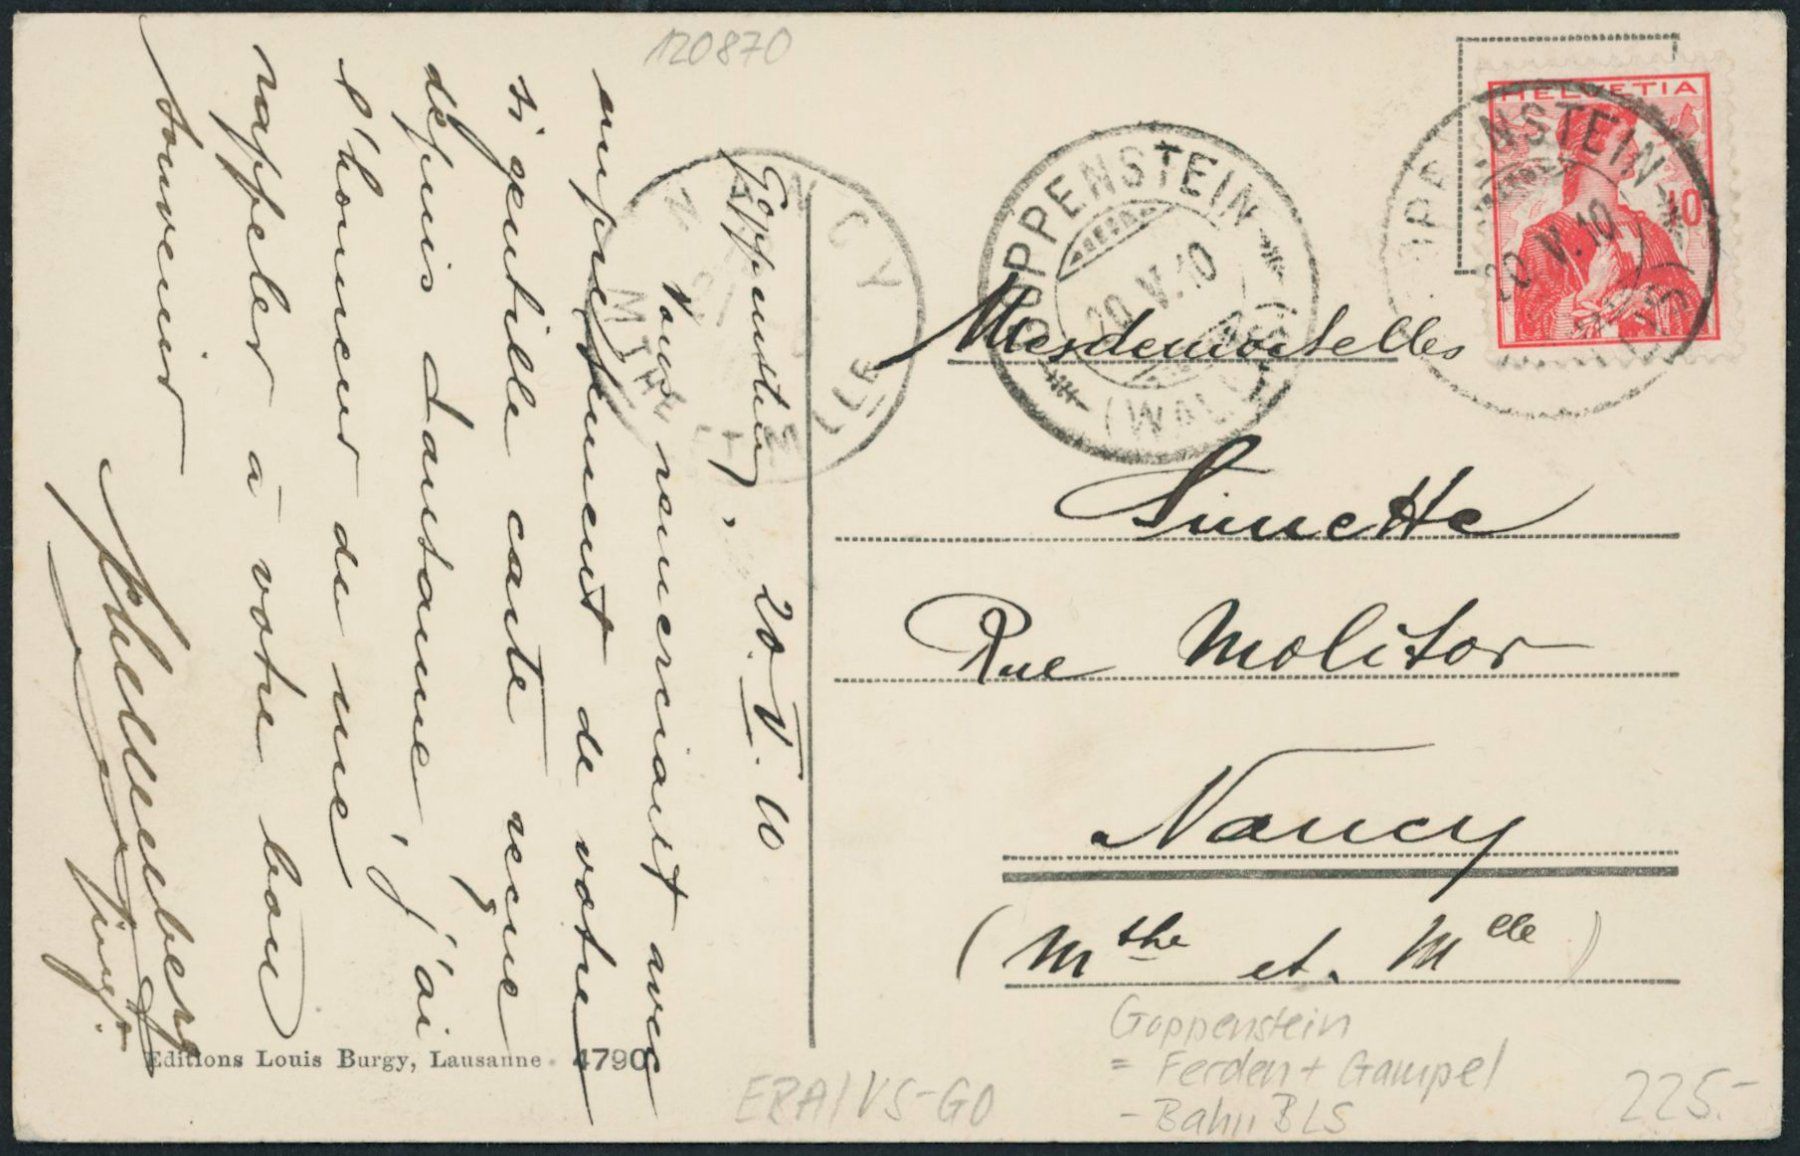 120870
Goppenstein, 20.V.10
Vous remerciant avec
empressement de votre
si gentille carte reçue
depuis Lausanne, j'ai
l'honneur de me
rappeler à votre bon
souvenir
jung.
Editions Louis Burgy, Lausanne. 4790
NANCY
MTHE ET MELLE
GOPPENSTEIN
20.V.10
(WALLIS)
HELVETIA
10
GOPPENSTEIN
20.V.10
(WALLIS)
Mesdemoiselles
Rue Molitor
Nancy
(Mthe et. Mlle)
Goppenstein
= Ferden + Gampel
- Bahn BLS
ERA/VS-GO
225.-